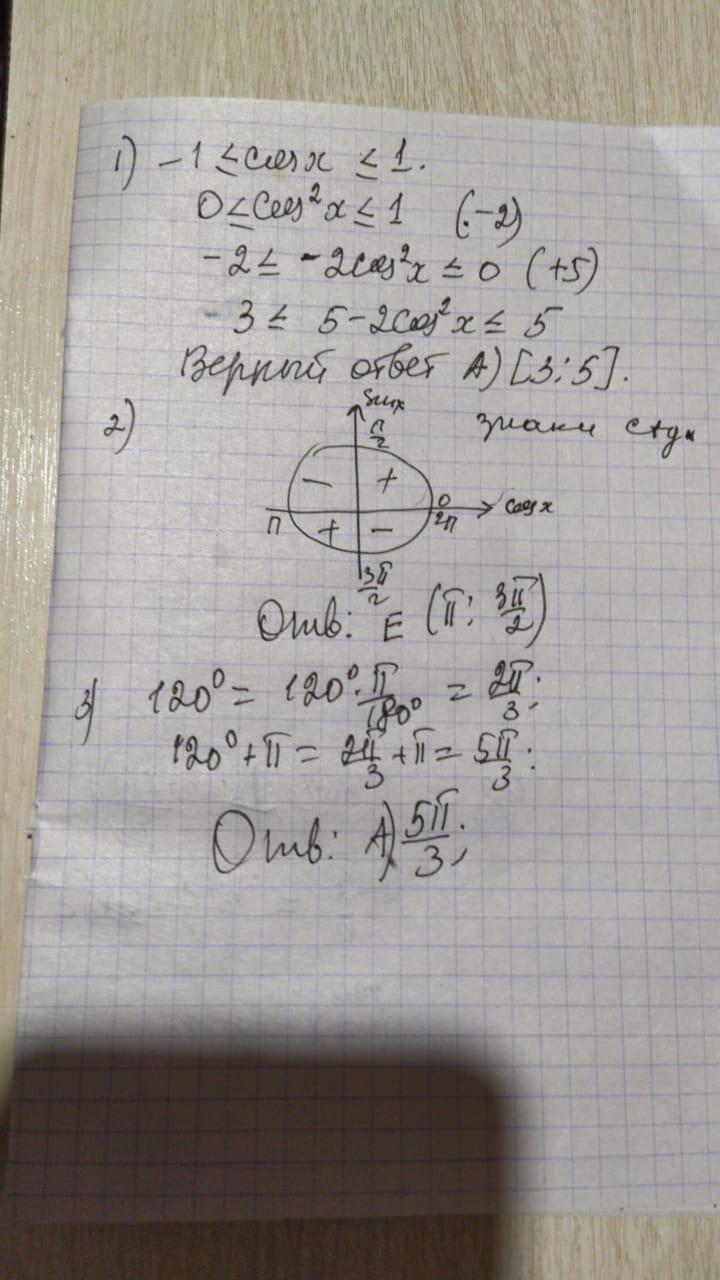 1) -1 ≤ cos x ≤ 1.
0 ≤ cos² x ≤ 1 (·-2)
-2 ≤ -2cos² x ≤ 0 (+5)
3 ≤ 5-2cos² x ≤ 5
Верный ответ А) [3; 5].
2) sin x
π/2
знаки ctgx
- +
π 0 cos x
+ - 2π
3π/2
Отв: E (π; 3π/2)
3) 120° = 120° · π/180° = 2π/3;
120° + π = 2π/3 + π = 5π/3;
Отв: А) 5π/3;